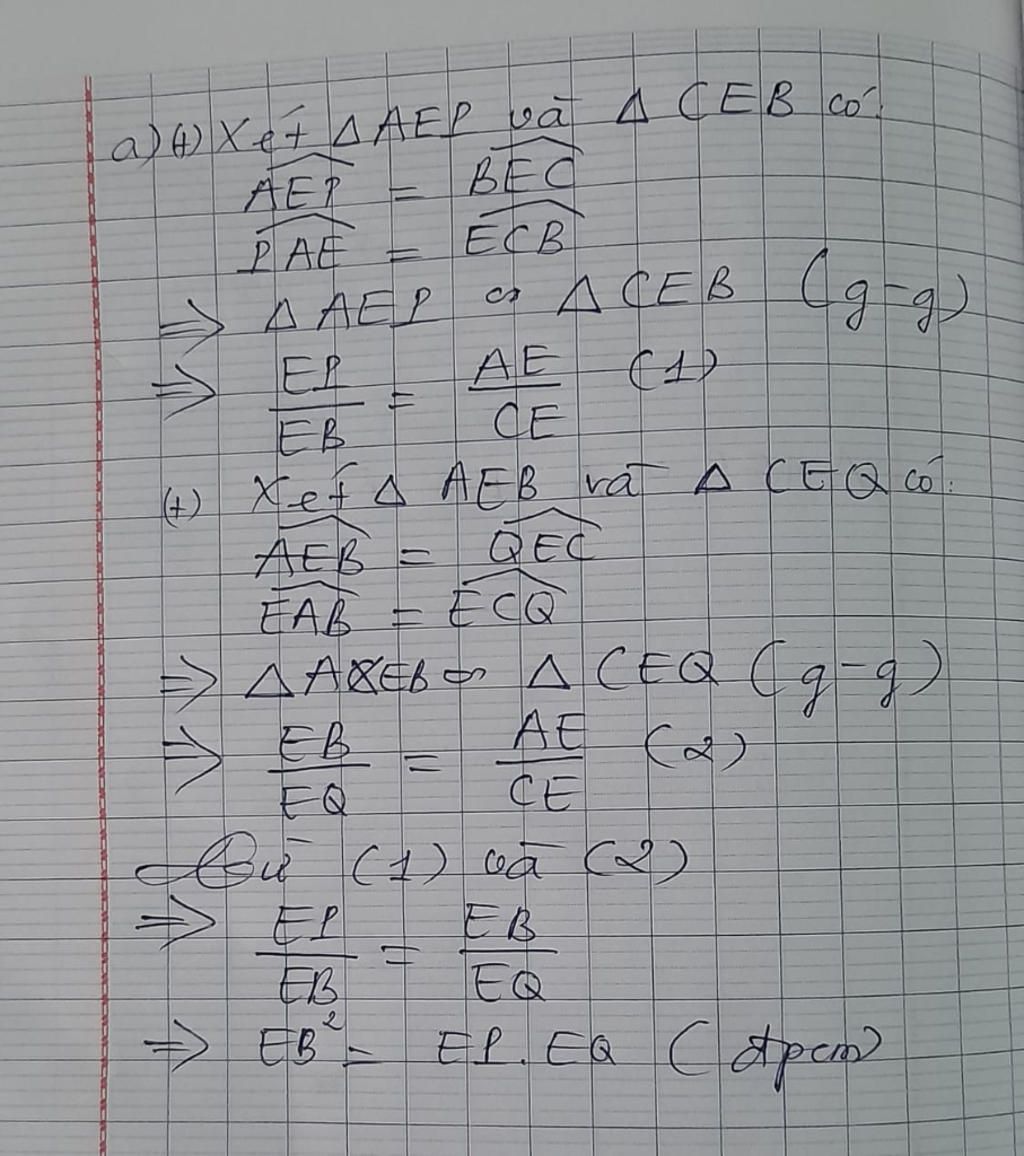 a) (+) Xét △AEP và △ CEB có:
AEP = BEC
PAE = ECB
⇒ △ AEP ∽ △ CEB (g-g)
⇒ EP/EB = AE/CE (1)
(+) Xét △ AEB và △ CEQ có:
AEB = QEC
EAB = ECQ
⇒ △ AEB ∽ △ CEQ (g-g)
⇒ EB/EQ = AE/CE (2)
Từ (1) và (2)
⇒ EP/EB = EB/EQ
⇒ EB² = EP.EQ (đpcm)